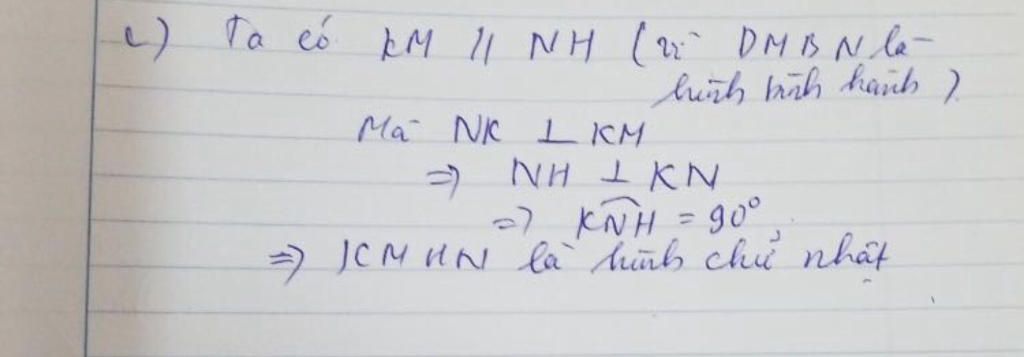 c) Ta có KM // NH (vì DMBN là
hình bình hành)
Mà NK ⊥ KM
=> NH ⊥ KN
=> KNH = 90°
=> KMHN là hình chữ nhật